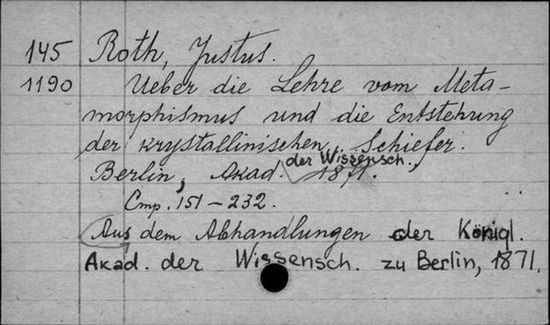 145 Roth, Justus.
1190 Ueber die Lehre vom Meta-
morphismus und die Entstehung
der krystallinischen Schiefer.
Berlin, Akad. der Wissensch., 1871.
Стр. 151-232.
Aus dem Abhandlungen der Königl.
Akad. der Wissensch. zu Berlin, 1871.